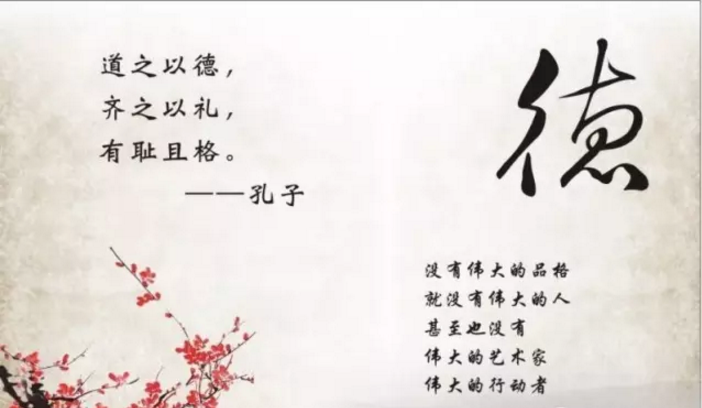 道之以德，
齐之以礼，
有耻且格。
——孔子
德
没有伟大的品格
就没有伟大的人
甚至也没有
伟大的艺术家
伟大的行动者